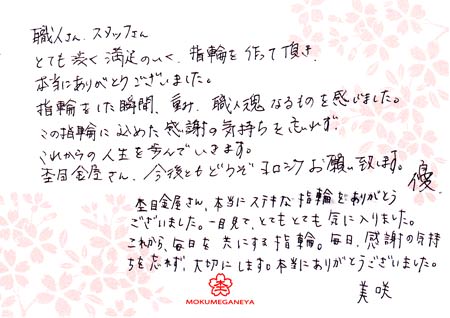 職人さん、スタッフさん
とても渋く満足のいく、指輪を作って頂き、
本当にありがとうございました。
指輪をした瞬間、重み、職人魂なるものを感じました。
この指輪に込めた感謝の気持ちを忘れず、
これからの人生を歩んでいきます。
杢目金屋さん、今後ともどうぞヨロシクお願い致します。
優
杢目金屋さん、本当にステキな指輪をありがとう
ございました。一目見て、とてもとても気に入りました。
これから、毎日を共にする指輪。毎日、感謝の気持
ちを忘れず、大切にします。本当にありがとうございました。
美咲
MOKUMEGANEYA